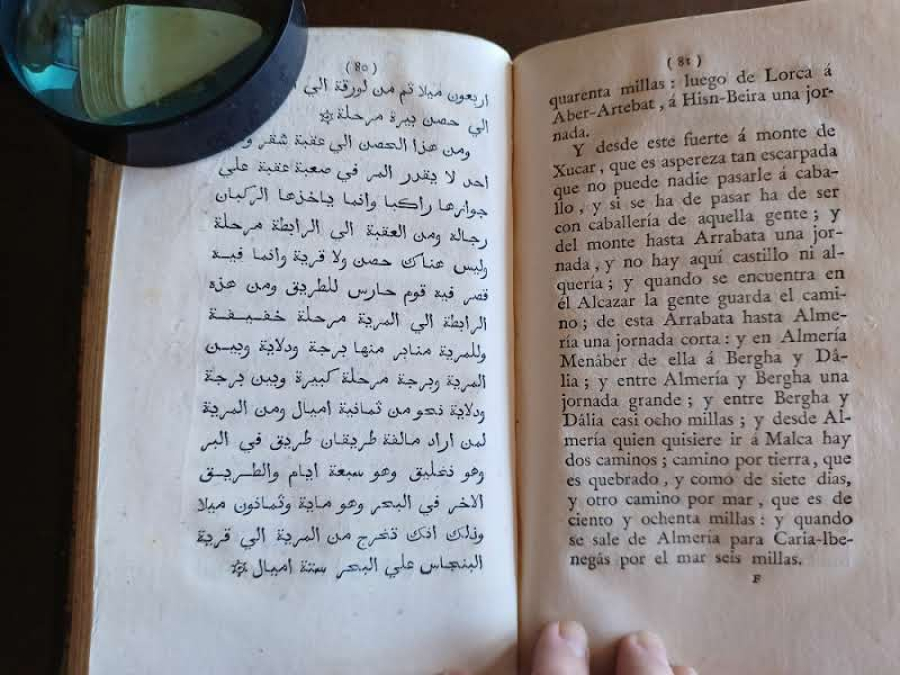 ( 80 )
اربعون ميلا ثم من لورقة الي
الي حصن بيرة مرحلة
ومن هذا الحصن الي عقبة شقر
احد لا يقدر المر في صعبة عقبة علي
جوازها راكبا وانما ياخذها الركبان
رجالة ومن العقبة الي الرابطة مرحلة
وليس هناك حصن ولا قرية وانما فيه
قصر فيه قوم حارس للطريق ومن هذه
الرابطة الي المرية مرحلة خفيفة
وللمرية منابر منها برجة ودلاية وبين
المرية وبرجة مرحلة كبيرة وبين برجة
ودلاية نحو من ثمانية اميال ومن المرية
لمن اراد مالقة طريقان طريق في البر
وهو تخليق وهو سبعة ايام والطريق
الاخر في البحر وهو ماية وثمانون ميلا
وذلك انك تخرج من المرية الي قرية
البنجاس علي البحر ستة اميال
( 81 )
quarenta millas : luego de Lorca á
Aber-Artebat , á Hisn-Beira una jor-
nada.
Y desde este fuerte á monte de
Xucar , que es aspereza tan escarpada
que no puede nadie pasarle á caba-
llo , y si se ha de pasar ha de ser
con caballería de aquella gente ; y
del monte hasta Arrabata una jor-
nada , y no hay aquí castillo ni al-
quería ; y quando se encuentra en
él Alcazar la gente guarda el cami-
no ; de esta Arrabata hasta Alme-
ría una jornada corta : y en Almería
Menáber de ella á Bergha y Dá-
lia ; y entre Almería y Bergha una
jornada grande ; y entre Bergha y
Dália casi ocho millas ; y desde Al-
mería quien quisiere ir á Malca hay
dos caminos ; camino por tierra , que
es quebrado , y como de siete dias,
y otro camino por mar , que es de
ciento y ochenta millas : y quando
se sale de Almería para Caria-lbe-
negás por el mar seis millas.
F